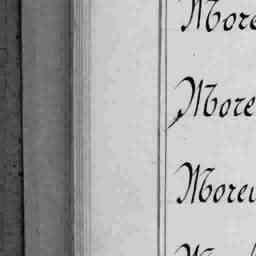 More
More
Morei